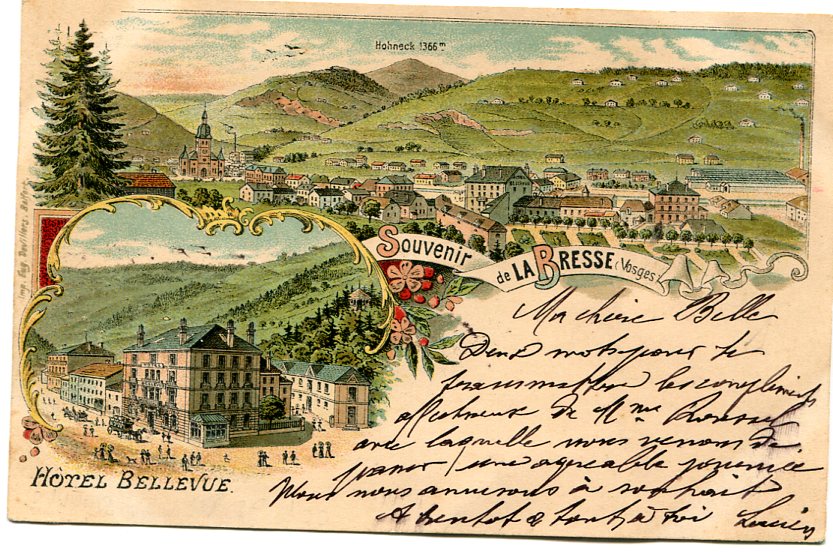 Hohneck 1366 m
Imp. Eug. Devillers, Belfort.
Souvenir
de LA BRESSE (Vosges)
HÔTEL BELLEVUE.
Ma chère Belle
Deux mots pour te
transmettre les compliments
affectueux de Mme
avec laquelle nous venons de
passer une agréable journée
Nous nous amusons à souhait
A bientôt & tout à toi Lucien